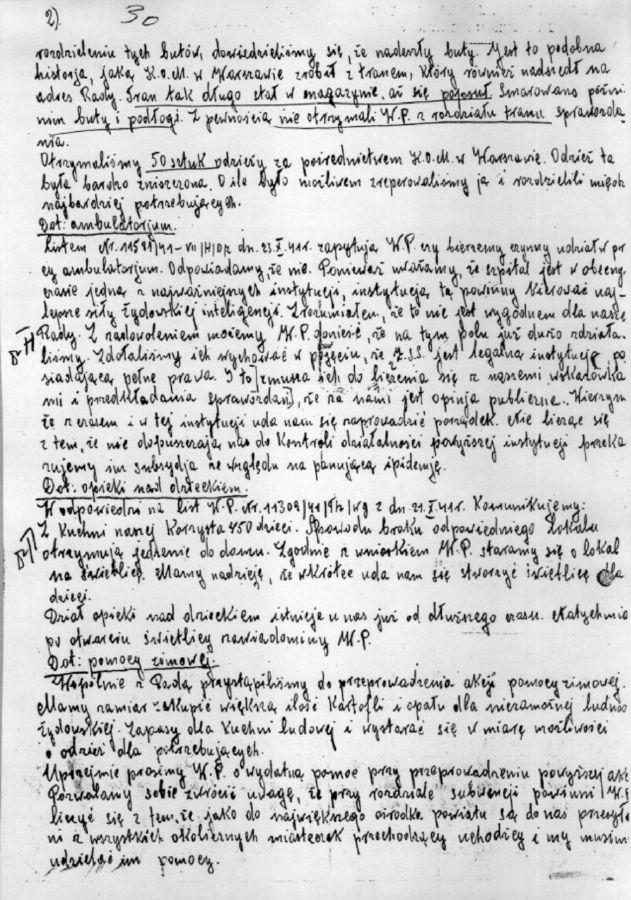 2) 30
rozdzieleniu tych butów, dowiedzieliśmy się, że nadeszły buty. Jest to podobna
historja, jaką K.O.M. w Warszawie zrobił z tranem, który również nadszedł na
adres Rady. Tran tak długo stał w magazynie, aż się popsuł. Smarowano późni
nim buty i podłogi. Z pewnością nie otrzymali W.P. z rozdziału tranu sprawozda
nia.
Otrzymaliśmy 50 sztuk odzieży za pośrednictwem K.O.M. w Warszawie. Odzież ta
była bardzo zniszczona. O ile było możliwem zreperowaliśmy ją i rozdzielili między
najbardziej potrzebujących.
Dot: ambulatorjum.
Listem Nr. 11521/41 - VII/H/Op z dn. 23.X.41r. zapytują W.P. czy bierzemy czynny udział w pr
cy ambulatorjum. Odpowiadamy, że nie. Ponieważ uważamy, że szpital jest w obecny
czasie jedną z najważniejszych instytucji, instytucją tą powinny kierować naj-
lepsze siły żydowskiej inteligencji. Zrozumiałem, że to nie jest wygodnem dla nasze
Rady. Z zadowoleniem możemy W.P. donieść, że na tym polu już dużo zdziała-
liśmy. Zdołaliśmy ich wychować w pojęciu, że Ż.S.S. jest legalną instytucją po
siadającą pełne prawa. I to zmusza ich do liczenia się z naszemi wskazówka
mi i przedkładania sprawozdań, że za nami jest opinja publiczna. Wierzym
że z czasem i w tej instytucji uda nam się zaprowadzić porządek. Nie licząc się
z tem, że nie dopuszczają nas do kontroli działalności powyższej instytucji przeka
zujemy im subsydja ze względu na panującą epidemję.
Dot: opieki nad dzieckiem.
W odpowiedzi na list W.P. Nr. 11309/41/Sh/Wg z dn. 21.X.41r. Komunikujemy:
Z kuchni naszej korzysta 450 dzieci. Spowodu braku odpowiedniego lokalu
otrzymują jedzenie do domu. Zgodnie z wnioskiem W.P. staramy się o lokal
na świetlicę. Mamy nadzieję, że wkrótce uda nam się stworzyć świetlicę dla
dzieci.
Dział opieki nad dzieckiem istnieje u nas już od dłuższego czasu. Natychmia
po otwarciu świetlicy zawiadomimy W.P.
Dot: pomocy zimowej.
Wspólnie z Radą przystąpiliśmy do przeprowadzenia akcji pomocy zimowej.
Mamy zamiar zakupić większą ilość kartofli i opału dla niezamożnej ludnoś
żydowskiej. Zapasy dla kuchni ludowej i wystarać się w miarę możliwości
o odzież dla potrzebujących.
Uprzejmie prosimy W.P. o wydatną pomoc przy przeprowadzeniu powyższej akc
Pozwalamy sobie zwrócić uwagę, że przy rozdziale subwencji powinni W.P.
liczyć się z tem, że jako do największego ośrodka powiatu są do nas przesyła
ni z wszystkich okolicznych miasteczek przechodzący uchodźcy i my musim
udzielać im pomocy.